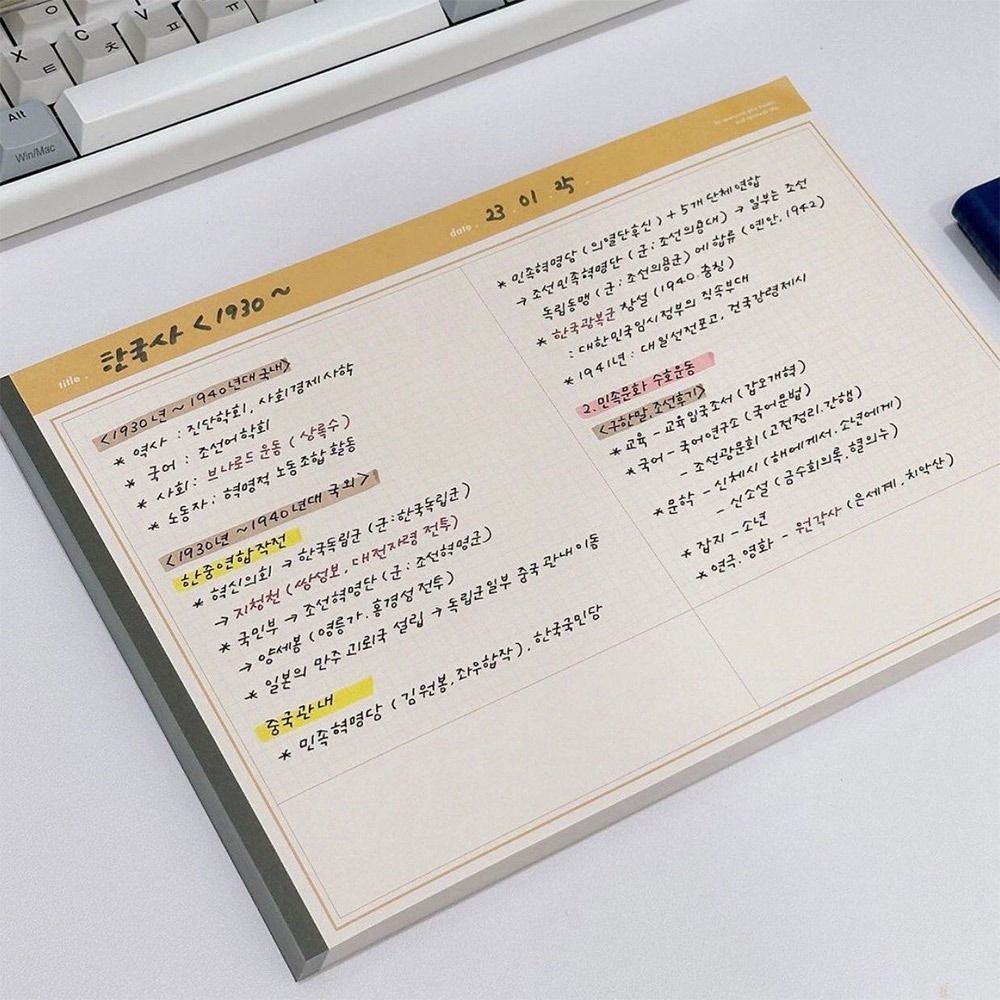 X
ㅌ
C
ㅊ
V
ㅍ
ㅠ
Alt
Win/Mac
title .
한국사 < 1930 ~
date .
23 . 01 . 25 .
<1930년 ~ 1940년대 국내>
* 역사 : 진단학회, 사회경제사학
국어 : 조선어학회
* 사회 : 브나로드 운동 (상록수)
* 노동자 : 혁명적 노동조합 활동
<1930년 ~ 1940년대 국외>
한중연합작전
* 혁신의회 → 한국독립군 (군:한국독립군)
→ 지청천 (쌍성보, 대전자령 전투)
* 국민부 → 조선혁명단 (군 : 조선혁명군)
→ 양세봉 (영릉가, 흥경성 전투)
* 일본의 만주 괴뢰국 설립 → 독립군일부 중국 관내 이동
중국관내
* 민족혁명당 (김원봉, 좌우합작), 한국국민당
* 민족혁명당 (의열단후신) + 5개 단체연합
→ 조선민족혁명단 (군:조선의용대) → 일부는 조선
독립동맹 (군 : 조선의용군) 에 합류 (옌안, 1942)
* 한국광복군 창설 (1940. 충칭)
: 대한민국임시정부의 직속부대
* 1941년 : 대일선전포고, 건국강령제시
2. 민족문화 수호운동
<구한말, 조선후기>
* 교육 - 교육입국조서 (갑오개혁)
* 국어 - 국어연구소 (국어문법)
- 조선광문회 (고전정리.간행)
* 문학 - 신체시 (해에게서.소년에게)
- 신소설 (금수회의록.혈의누)
* 잡지 - 소년
* 연극.영화 - 원각사 (은세계.치악산)